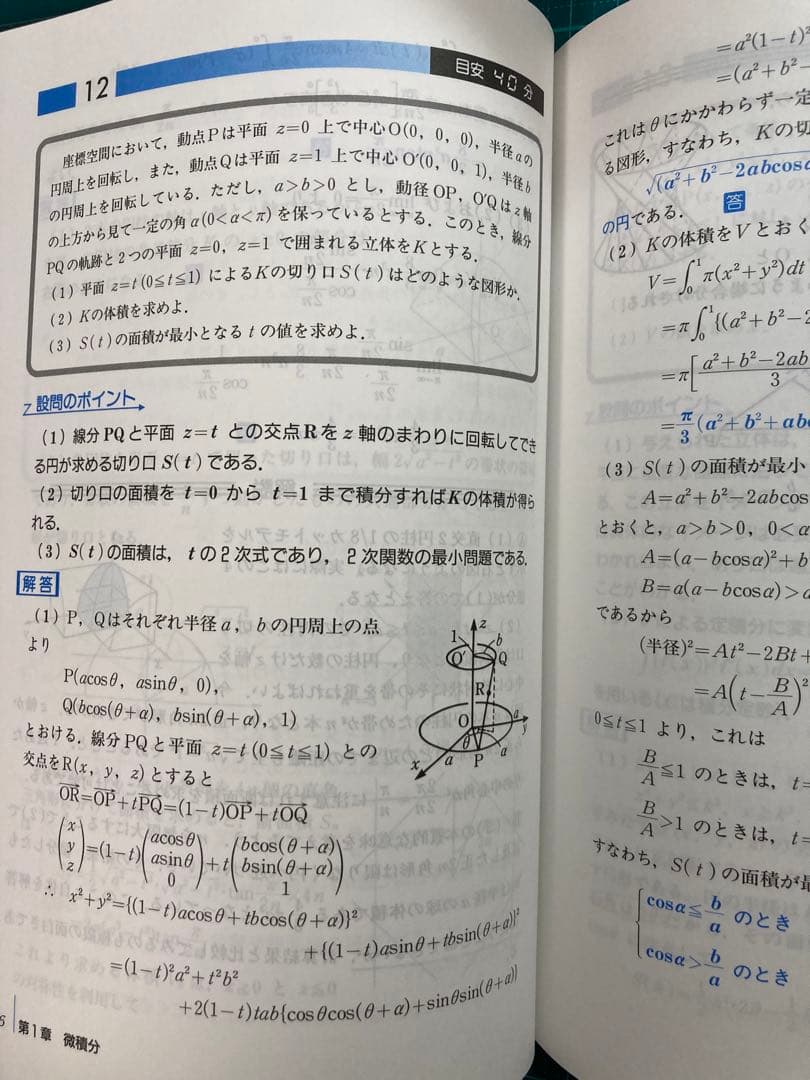 12
目安 40 分
座標空間において，動点Pは平面 z=0 上で中心O(0, 0, 0)，半径aの
円周上を回転し，また，動点Qは平面 z=1 上で中心O′(0, 0, 1)，半径b
の円周上を回転している．ただし，a>b>0 とし，動径OP，O′Qはz軸
の上方から見て一定の角α(0<α<π)を保っているとする．このとき，線分
PQの軌跡と2つの平面 z=0，z=1 で囲まれる立体をKとする．
(1) 平面 z=t(0≦t≦1) によるKの切り口S(t)はどのような図形か．
(2) Kの体積を求めよ．
(3) S(t)の面積が最小となる t の値を求めよ．
設問のポイント
(1) 線分PQと平面 z=t との交点Rをz軸のまわりに回転してでき
る円が求める切り口S(t)である．
(2) 切り口の面積を t=0 から t=1 まで積分すればKの体積が得ら
れる．
(3) S(t)の面積は，tの2次式であり，2次関数の最小問題である．
解答
(1) P，Qはそれぞれ半径a，bの円周上の点
より
P(acosθ, asinθ, 0),
Q(bcos(θ+α), bsin(θ+α), 1)
とおける．線分PQと平面 z=t(0≦t≦1) との
交点をR(x, y, z)とすると
OR=OP+tPQ=(1-t)OP+tOQ
(x y z)=(1-t)(acosθ asinθ 0)+t(bcos(θ+α) bsin(θ+α) 1)
∴ x²+y²={(1-t)acosθ+tbcos(θ+α)}²
+{(1-t)asinθ+tbsin(θ+α)}²
=(1-t)²a²+t²b²
+2(1-t)tab{cosθcos(θ+α)+sinθsin(θ+α)}
z
1
b
O′
Q
R
O
θ
a
a
P
a
x
y
6 第1章 微積分
=a²(1-t)²
=(a²+b²-
これはθにかかわらず一定
る図形，すなわち，Kの切
√(a²+b²-2abcosα
の円である． 答
(2) Kの体積をVとおく
V=∫₀¹π(x²+y²)dt
=π∫₀¹{(a²+b²-2
=π[(a²+b²-2ab)/3
=π/3(a²+b²+ab
(3) S(t)の面積が最小
A=a²+b²-2abcos
とおくと，a>b>0，0<α
A=(a-bcosα)²+b
B=a(a-bcosα)>
であるから
(半径)²=At²-2Bt+
=A(t-B/A)²
0≦t≦1 より，これは
B/A≦1 のときは，t=
B/A>1 のときは，t=
すなわち，S(t)の面積が最
cosα≦b/a のとき
cosα>b/a のとき